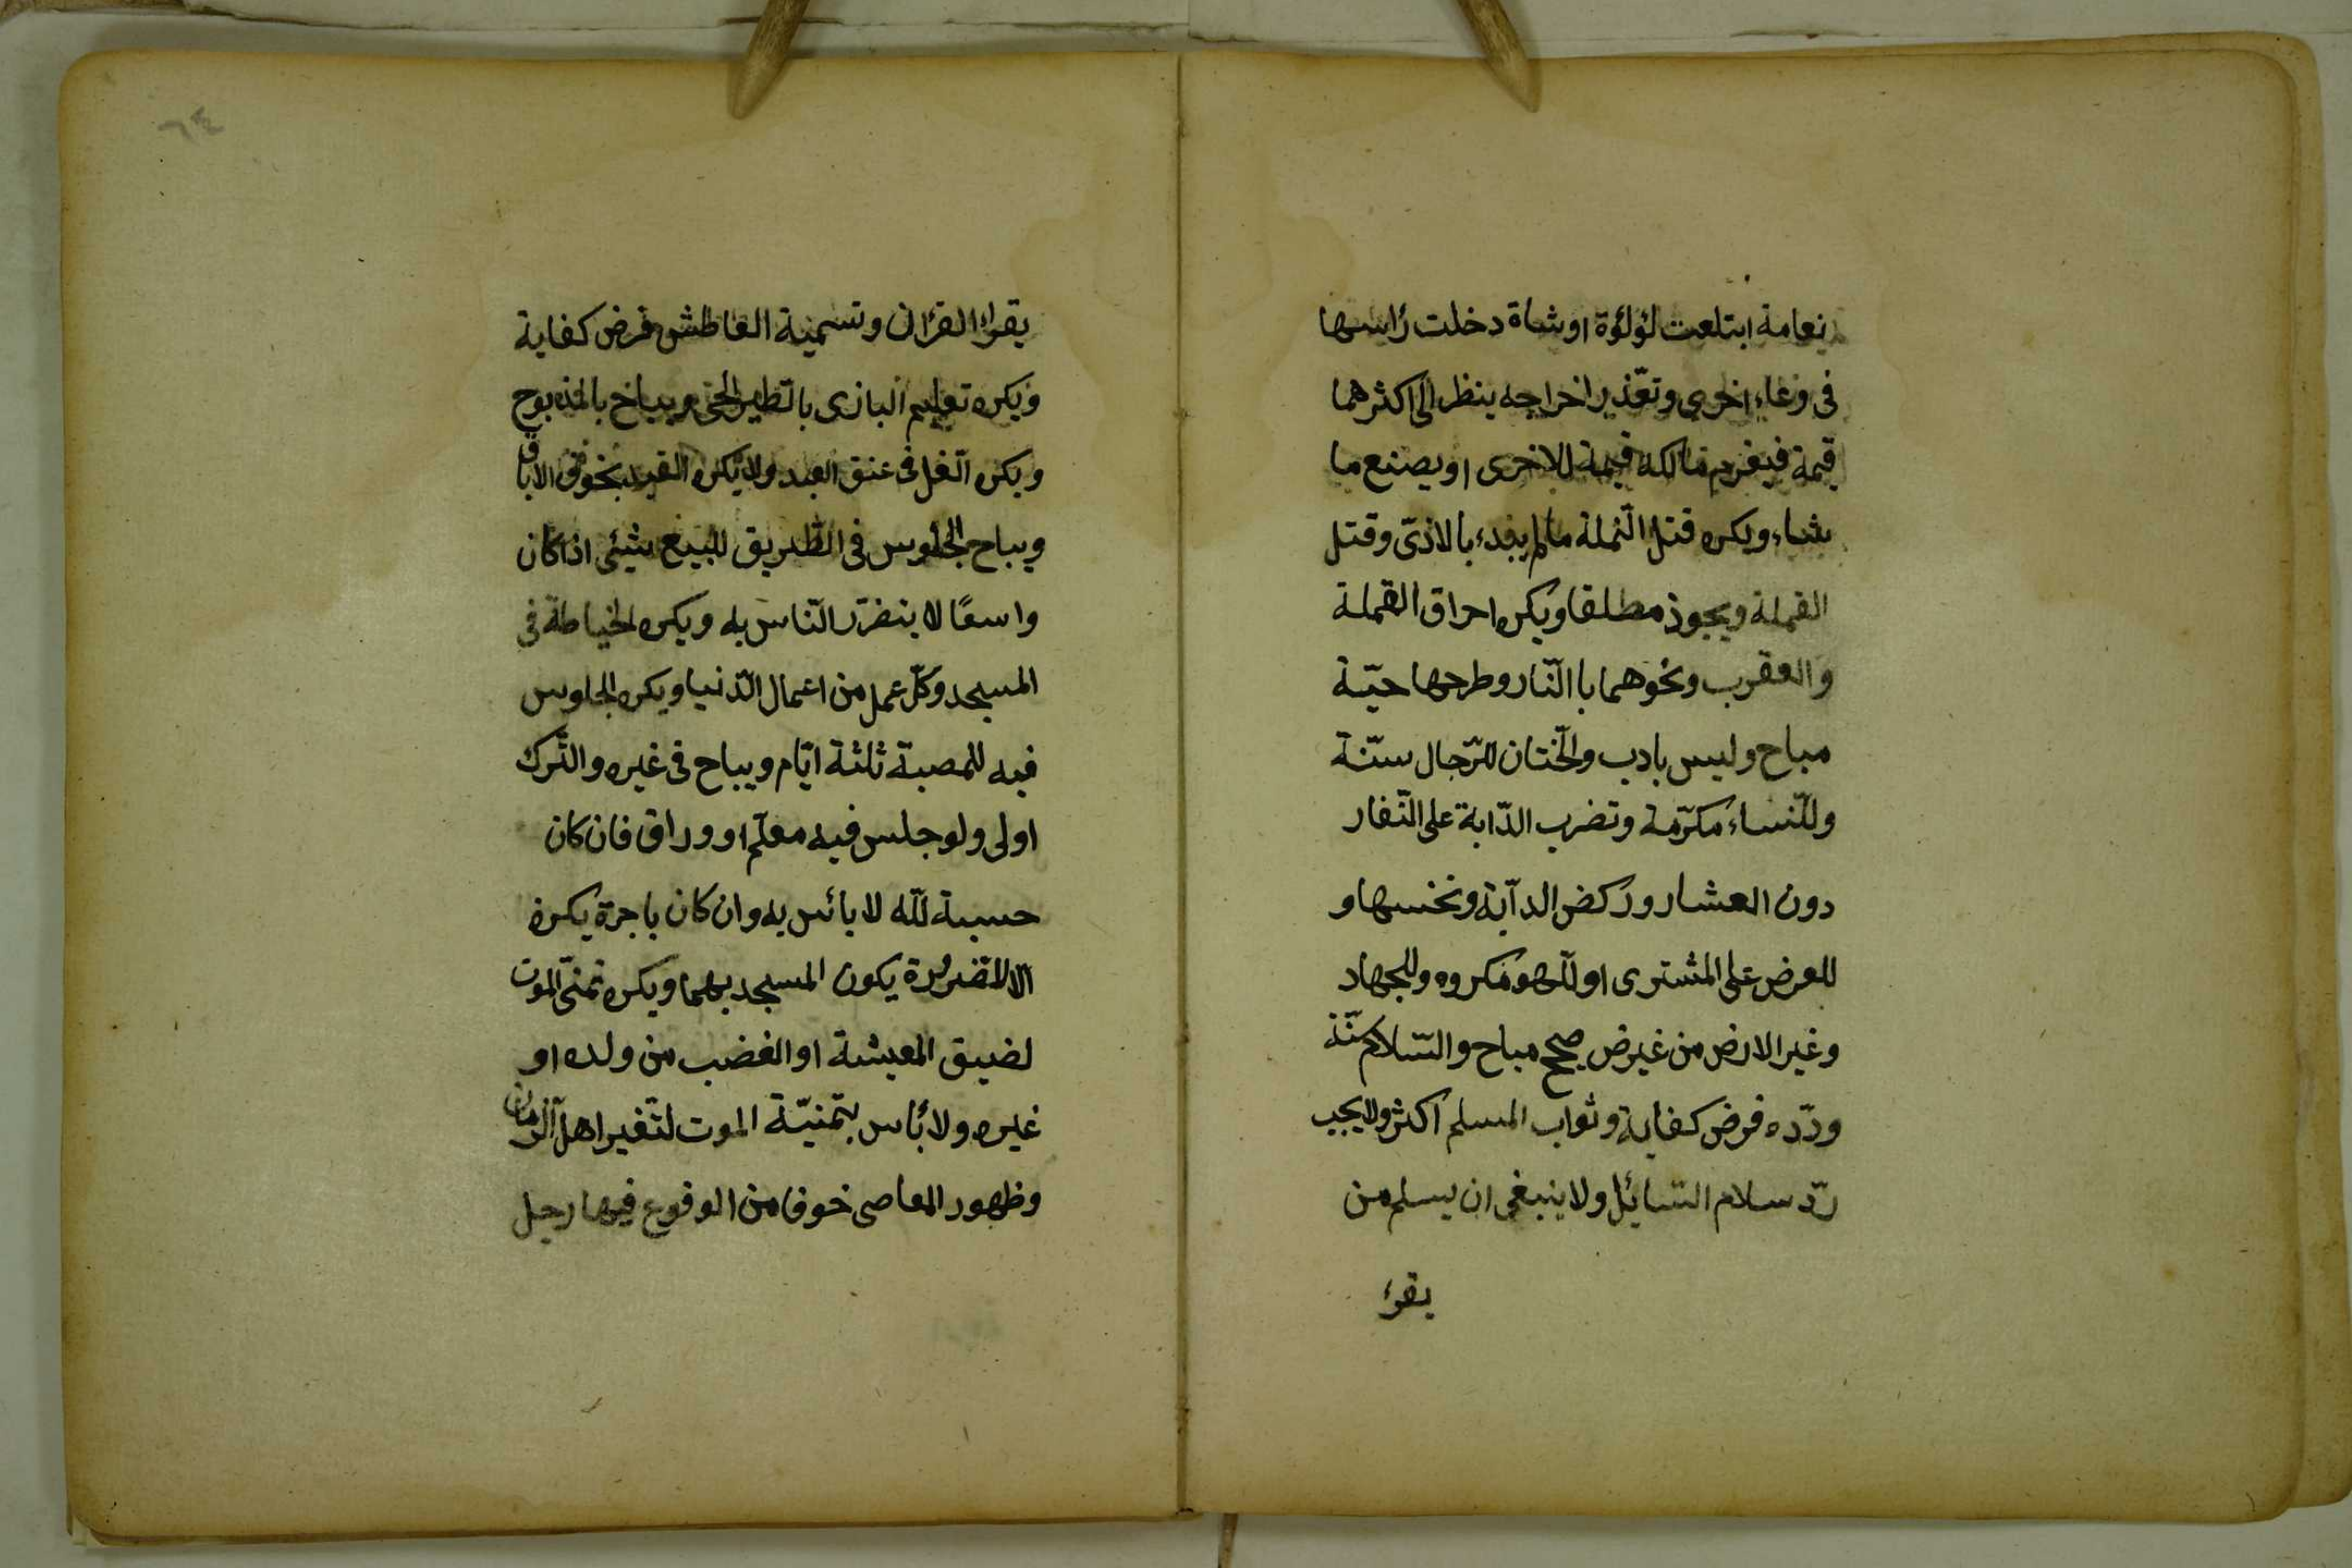 نعامة ابتلعت لؤلؤة او شاة دخلت رأسها
فى وعاء اخرى وتعّذير اخراجه ينظر الى اكثرهما
قيمة فيغرم مالكه قيمة الاخرى او يصنع ما
شاء ويكره قتل النّملة ما لم يبدء بالاذىّ وقتل
القملة ويجوز مطلقا ويكره احراق القملة
والعقرب ونحوهما باالنّار وطرحها حيّة
مباح وليس بادب والختان للرّجال سنّة
وللنّساء مكرّمة وتضرب الدّابة على النّفار
دون العشار وركض الدآبة ونخسها و
للعرض على المشترى او للّهو مكروه وللجهاد
وغير الارض من غيرض صحيح مباح والسّلام سنّة
وردّه فرض كفاية وثواب المسلم اكثر ولا يجب
ردّ سلام السّايئل ولا ينبغى ان يسلم من
يقرء
يقراء القرأن وتسمية العاطش فرض كفاية
ويكره تعليم البازى بالطير الحى ويباح بالمذبوح
ويكره الغل فى عنق العبد ولا يكره القيد بخوف الاباق
ويباح الجلوس فى الطّريق للبيع شيئى اذا كان
واسعًا لا يتضرّر النّاس به ويكره الخياطة فى
المسجد وكلّ عمل من اعمال الدّنيا ويكره الجلوس
فيه للمصبة ثلثة ايّام ويباح فى غيره والتّرك
اولى ولو جلس فيه معلّم او وراق فان كان
حسبة للّه لا بائس به وان كان باجرة يكره
الا للضرورة يكون المسجد بهما ويكره تمنّى الموت
لضيق المعيشة او الغضب من ولده او
غيره ولا بأس بتمنيّة الموت لتّغير اهل الزمان
وظهور المعاصى خوفا من الوقوع فيها رجل